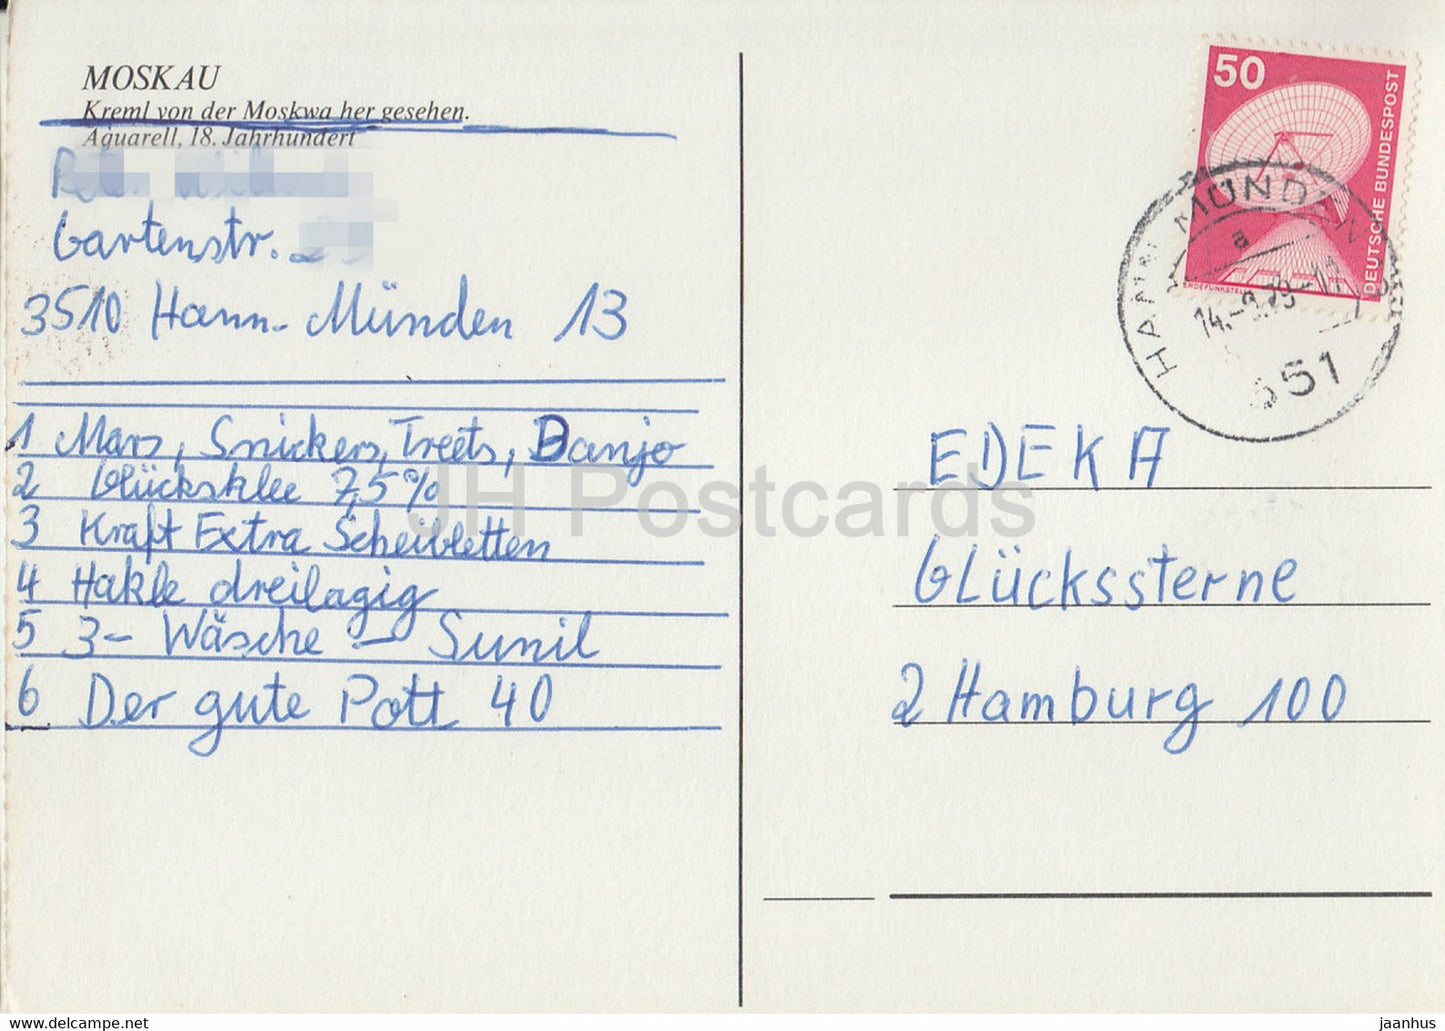 MOSKAU
Kreml von der Moskwa her gesehen.
Aquarell, 18. Jahrhundert
Gartenstr.
3510 Hann. Münden 13
1 Mars, Snickers, Treets, Banjo
2 Glücksklee 7,5%
3 Kraft Extra Scheibletten
4 Hakle dreilagig
5 3- Wäsche - Sunil
6 Der gute Pott 40
50
DEUTSCHE BUNDESPOST
ERDEFUNKSTELLE
HANN MÜNDEN
a
351
EDEKA
GLückssterne
2 Hamburg 100
JH Postcards
https://www.ebid.net/
jaanhus